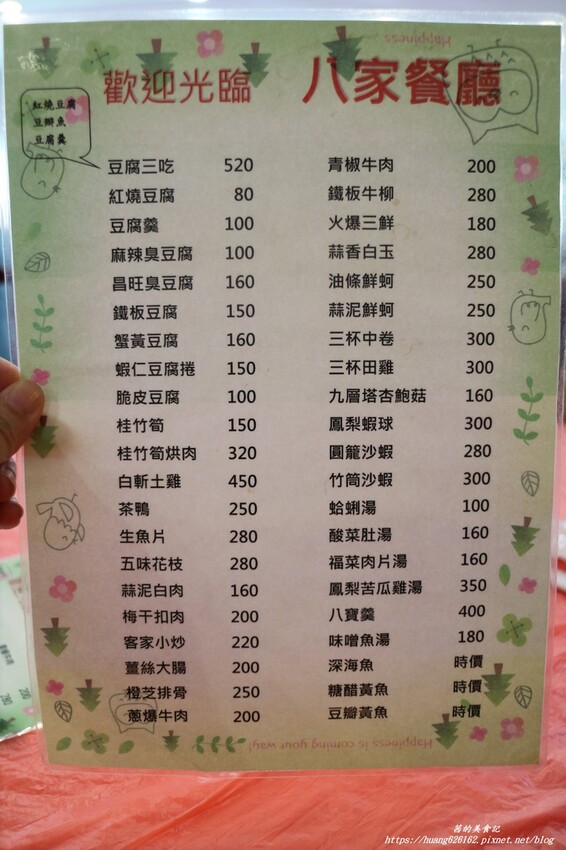 Happiness
歡迎光臨 八家餐廳
紅燒豆腐
豆瓣魚
豆腐羹
豆腐三吃 520
紅燒豆腐 80
豆腐羹 100
麻辣臭豆腐 100
昌旺臭豆腐 160
鐵板豆腐 150
蟹黃豆腐 160
蝦仁豆腐捲 150
脆皮豆腐 100
桂竹筍 150
桂竹筍烘肉 320
白斬土雞 450
茶鴨 250
生魚片 280
五味花枝 280
蒜泥白肉 160
梅干扣肉 200
客家小炒 220
薑絲大腸 200
橙芝排骨 250
蔥爆牛肉 200
青椒牛肉 200
鐵板牛柳 280
火爆三鮮 180
蒜香白玉 280
油條鮮蚵 250
蒜泥鮮蚵 250
三杯中卷 300
三杯田雞 300
九層塔杏鮑菇 160
鳳梨蝦球 300
圓籠沙蝦 280
竹筒沙蝦 300
蛤蜊湯 100
酸菜肚湯 160
福菜肉片湯 160
鳳梨苦瓜雞湯 350
八寶羹 400
味噌魚湯 180
深海魚 時價
糖醋黃魚 時價
豆瓣黃魚 時價
Happiness is coming your way!
茜的美食記
https://huang626162.pixnet.net/blog